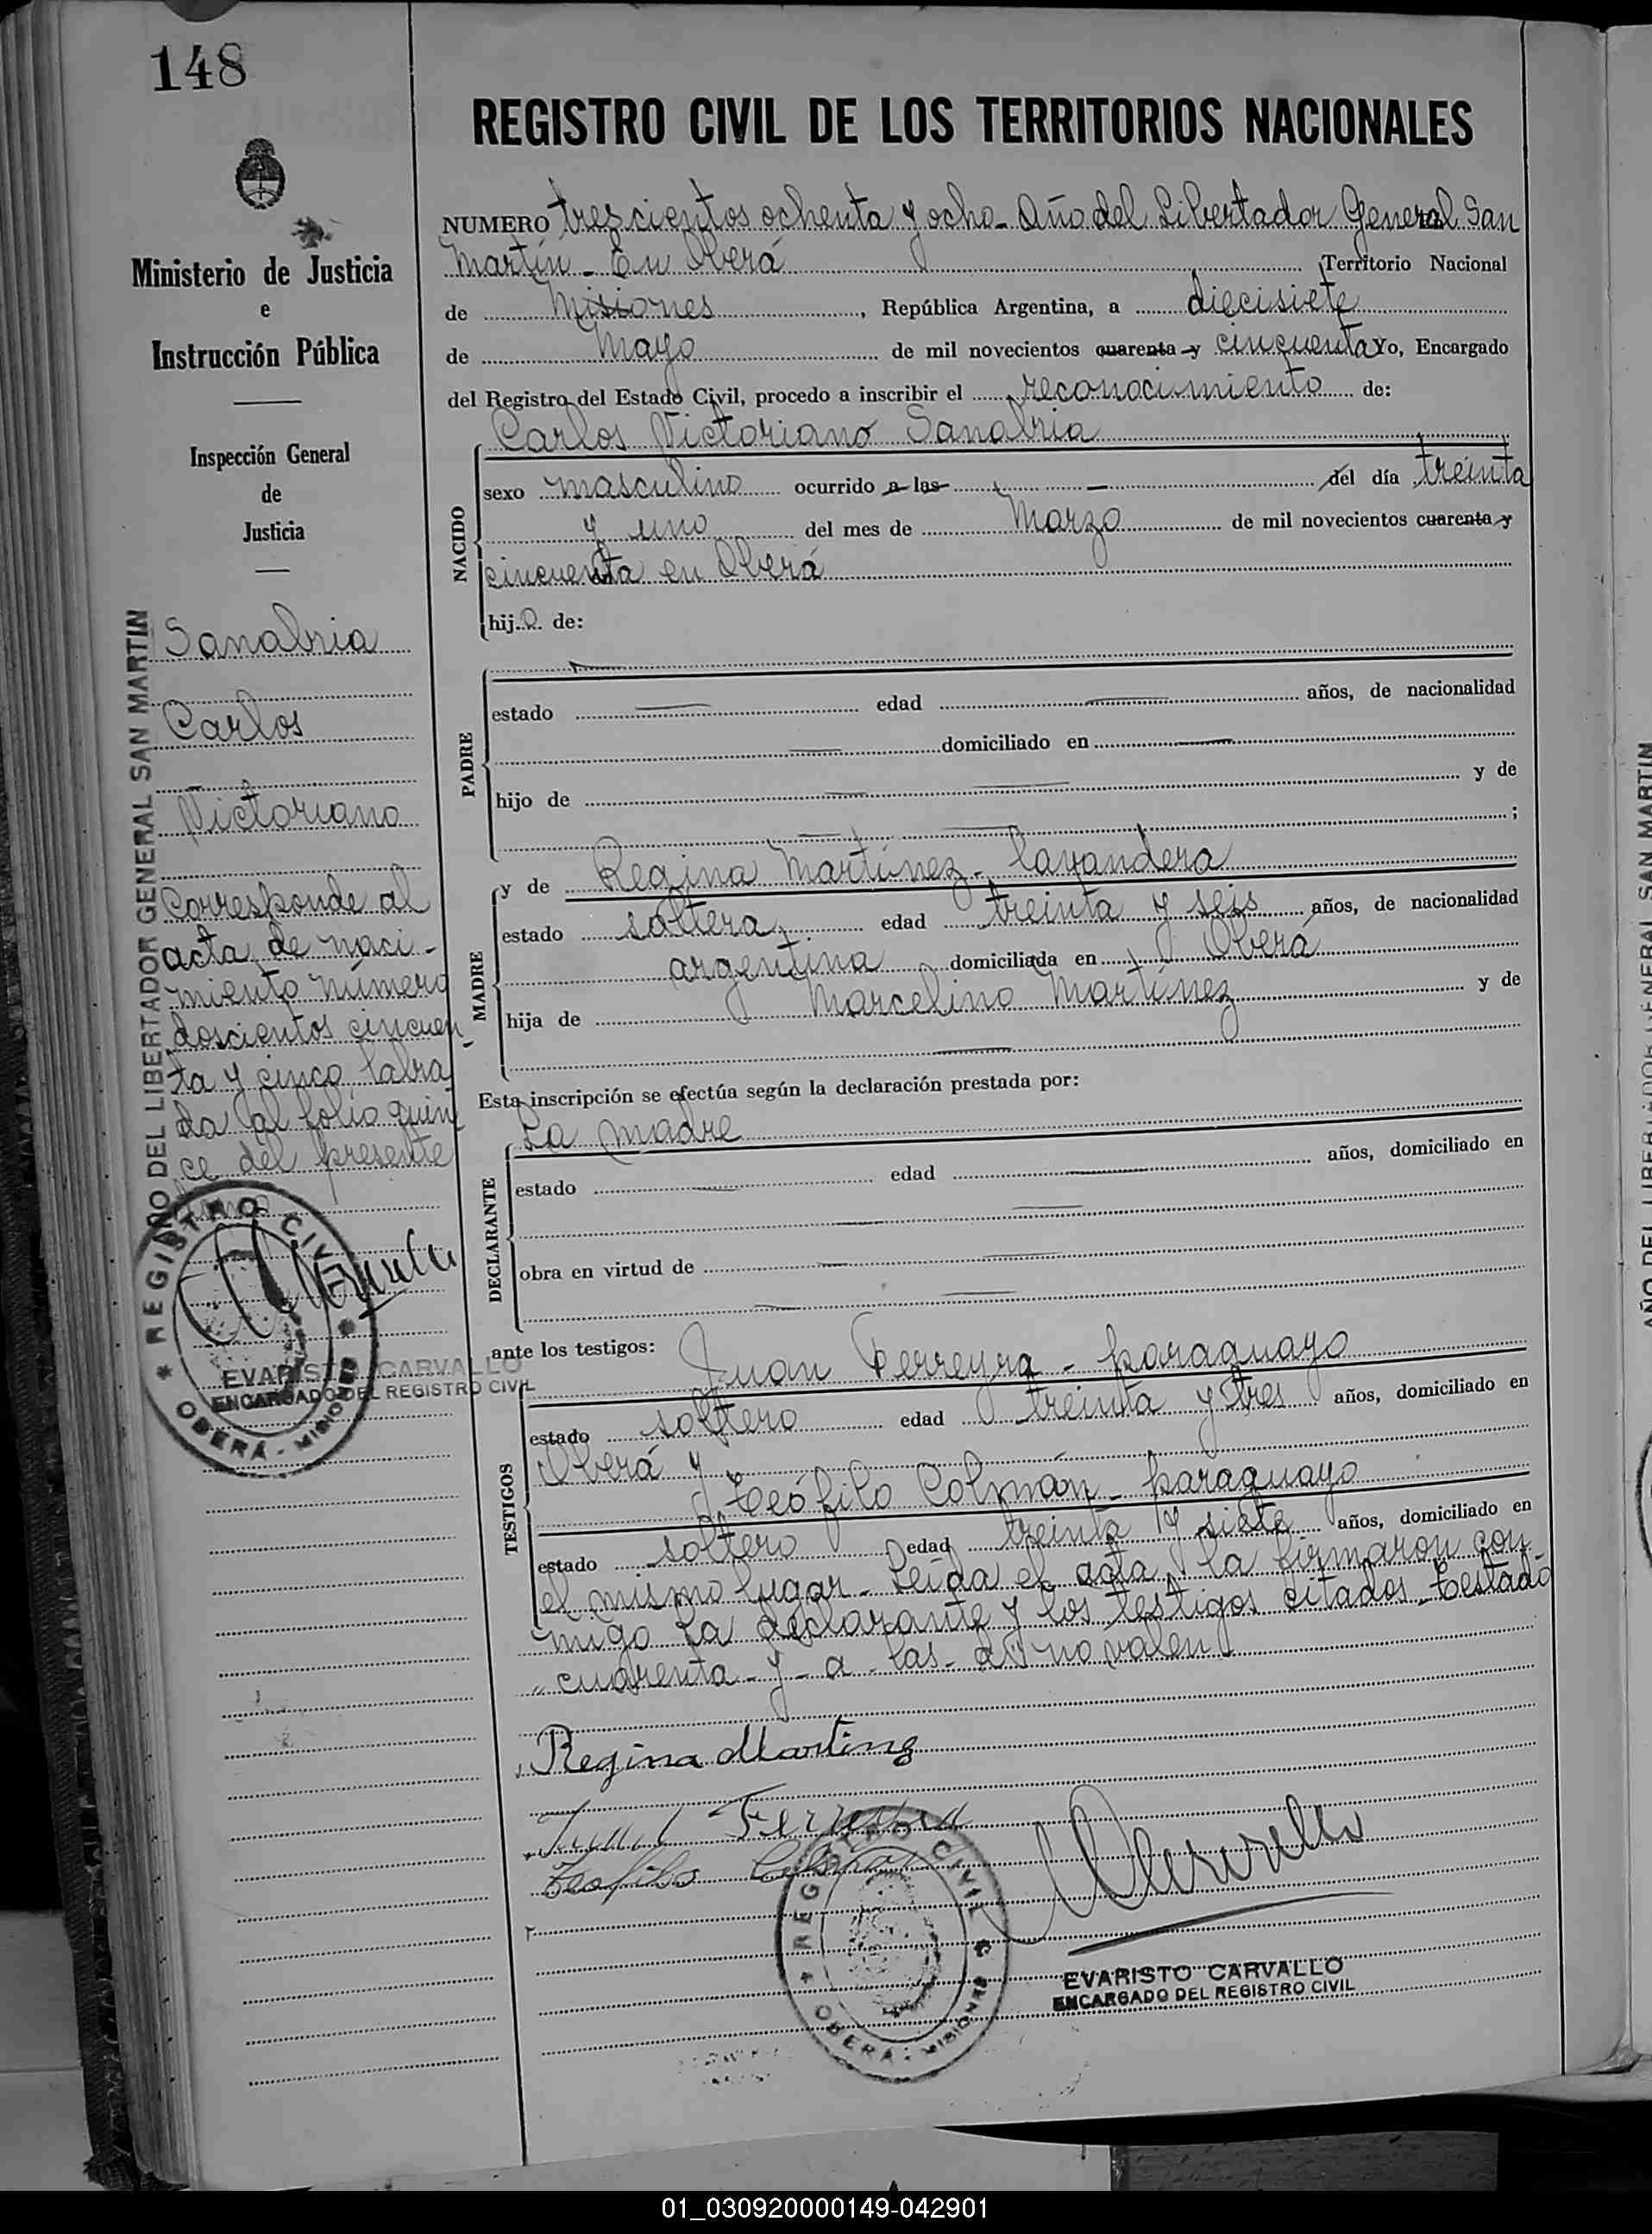 148
REGISTRO CIVIL DE LOS TERRITORIOS NACIONALES
Ministerio de Justicia
e
Instrucción Pública
Inspección General
de
Justicia
AÑO DEL LIBERTADOR GENERAL SAN MARTIN
Sanabria
Carlos
Victoriano
Corresponde al
acta de naci-
miento número
doscientos cincuen
ta y cinco labra
da al folio quin
ce del presente
REGISTRO CIVIL
OBERÁ - MISIONES
EVARISTO CARVALLO
ENCARGADO DEL REGISTRO CIVIL
NUMERO trescientos ochenta y ocho- Año del Libertador General San
Martín - En Oberá Territorio Nacional
de Misiones, República Argentina, a diecisiete
de Mayo de mil novecientos cuarenta y cincuenta Yo, Encargado
del Registro del Estado Civil, procedo a inscribir el reconocimiento de:
Carlos Victoriano Sanabria
NACIDO
sexo masculino ocurrido a las - del día treinta
y uno del mes de Marzo de mil novecientos cuarenta y
cincuenta en Oberá
hijo de:
PADRE
estado edad años, de nacionalidad
domiciliado en
hijo de y de
;
MADRE
y de Regina Martínez- lavandera
estado soltera edad treinta y seis años, de nacionalidad
argentina domiciliada en Oberá
hija de Marcelino Martínez y de
Esta inscripción se efectúa según la declaración prestada por:
La madre
DECLARANTE
estado edad años, domiciliado en
obra en virtud de
ante los testigos: Juan Ferreyra - paraguayo
TESTIGOS
estado soltero edad treinta y tres años, domiciliado en
Oberá y
Teófilo Colmán - paraguayo
estado soltero edad treinta y siete años, domiciliado en
el mismo lugar - Leída el acta la firmaron con
migo la declarante y los testigos citados - Testado
"cuarenta - y - a - las - no valen
Regina Martinez
Juan Ferreyra
Teofilo Colman
REGISTRO CIVIL
OBERÁ - MISIONES
EVARISTO CARVALLO
ENCARGADO DEL REGISTRO CIVIL
AÑO DEL LIBERTADOR GENERAL SAN MARTIN
01_030920000149-042901